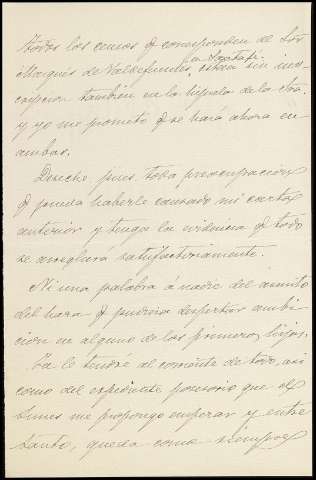 todos los censos q corresponden de los
Marqués de Valdefuentes, en Getafe, están sin ins-
cripcion tambien en la hijuela de la Sra.
y yo me prometo q se hará ahora en
ambas.
Deseche pues toda preocupación
q pueda haberle causado mi carta
anterior y tenga la evidencia q todo
se arreglará satisfactoriamente.
Ni una palabra á nadie del asunto
del hara q pudiera despertar ambi-
cion en alguno de los primeros hijos.
Ya le tendré al corriente de todo, asi
como del expediente posesorio que el
Lunes me propongo empezar y entre
tanto, queda como siempre